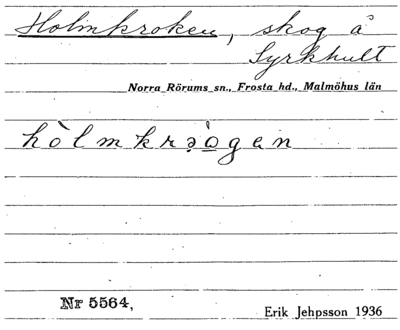 Holmkroken, skog å
Syrkhult
Norra Rörums sn., Frosta hd., Malmöhus län
Nr 5564,
Erik Jehpsson 1936